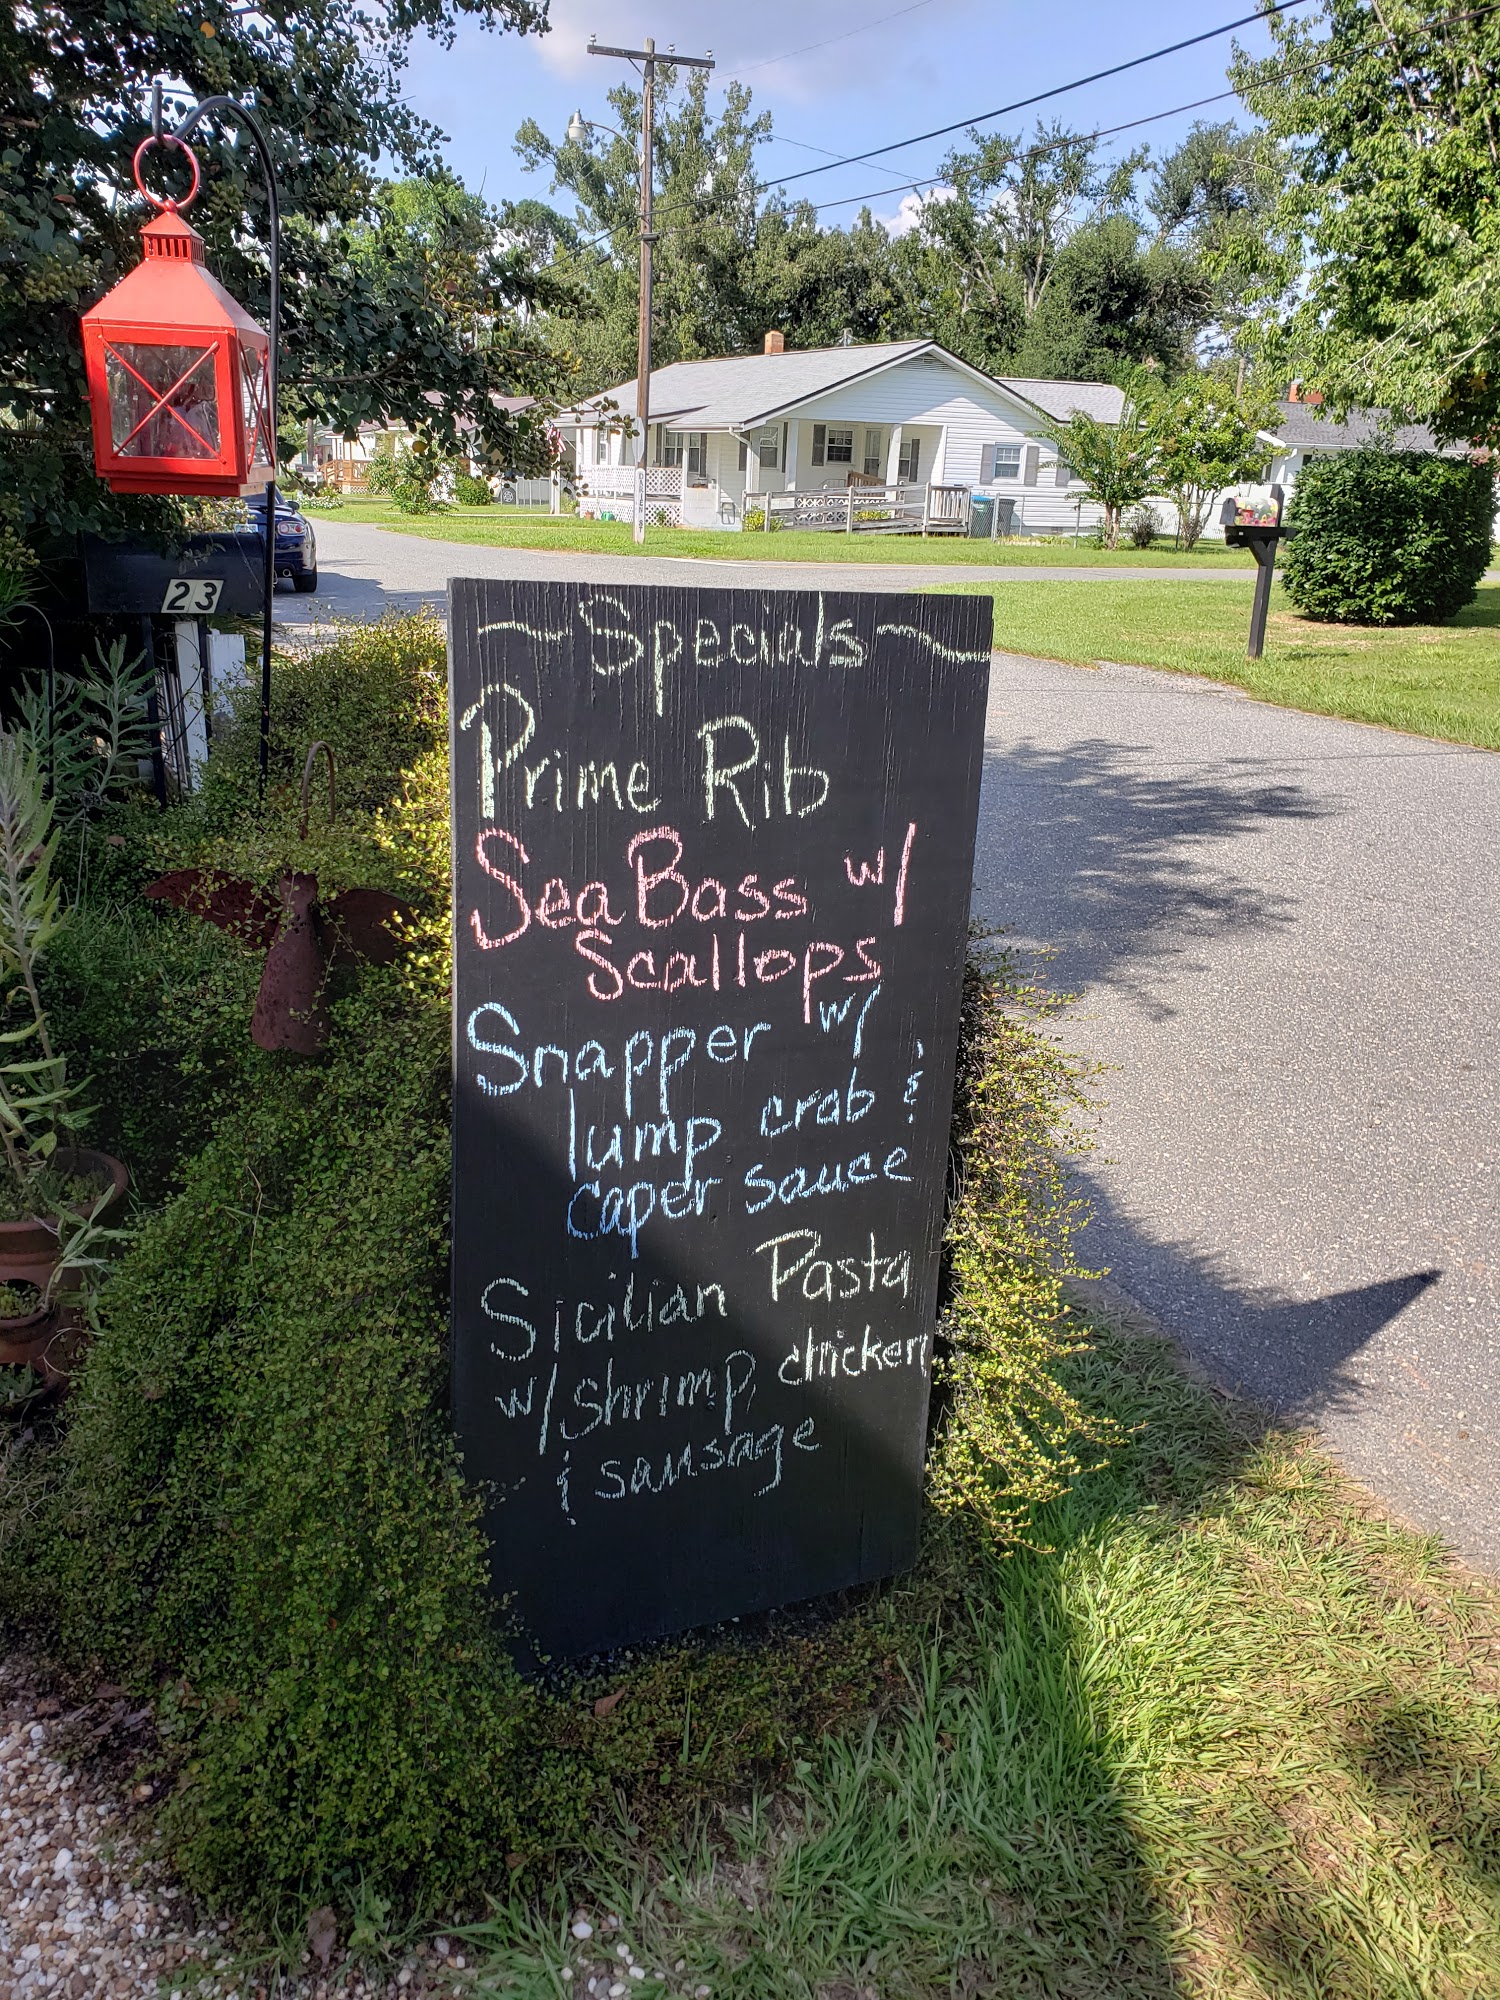 23
~Specials~
Prime Rib
Sea Bass w/
Scallops
Snapper w/
lump crab &
caper sauce
Sicilian Pasta
w/ shrimp, chicken
& sausage